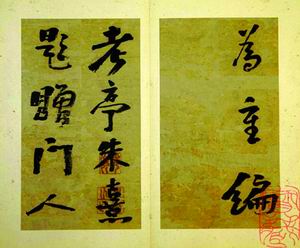 為重編
考亭朱熹
題贈门人